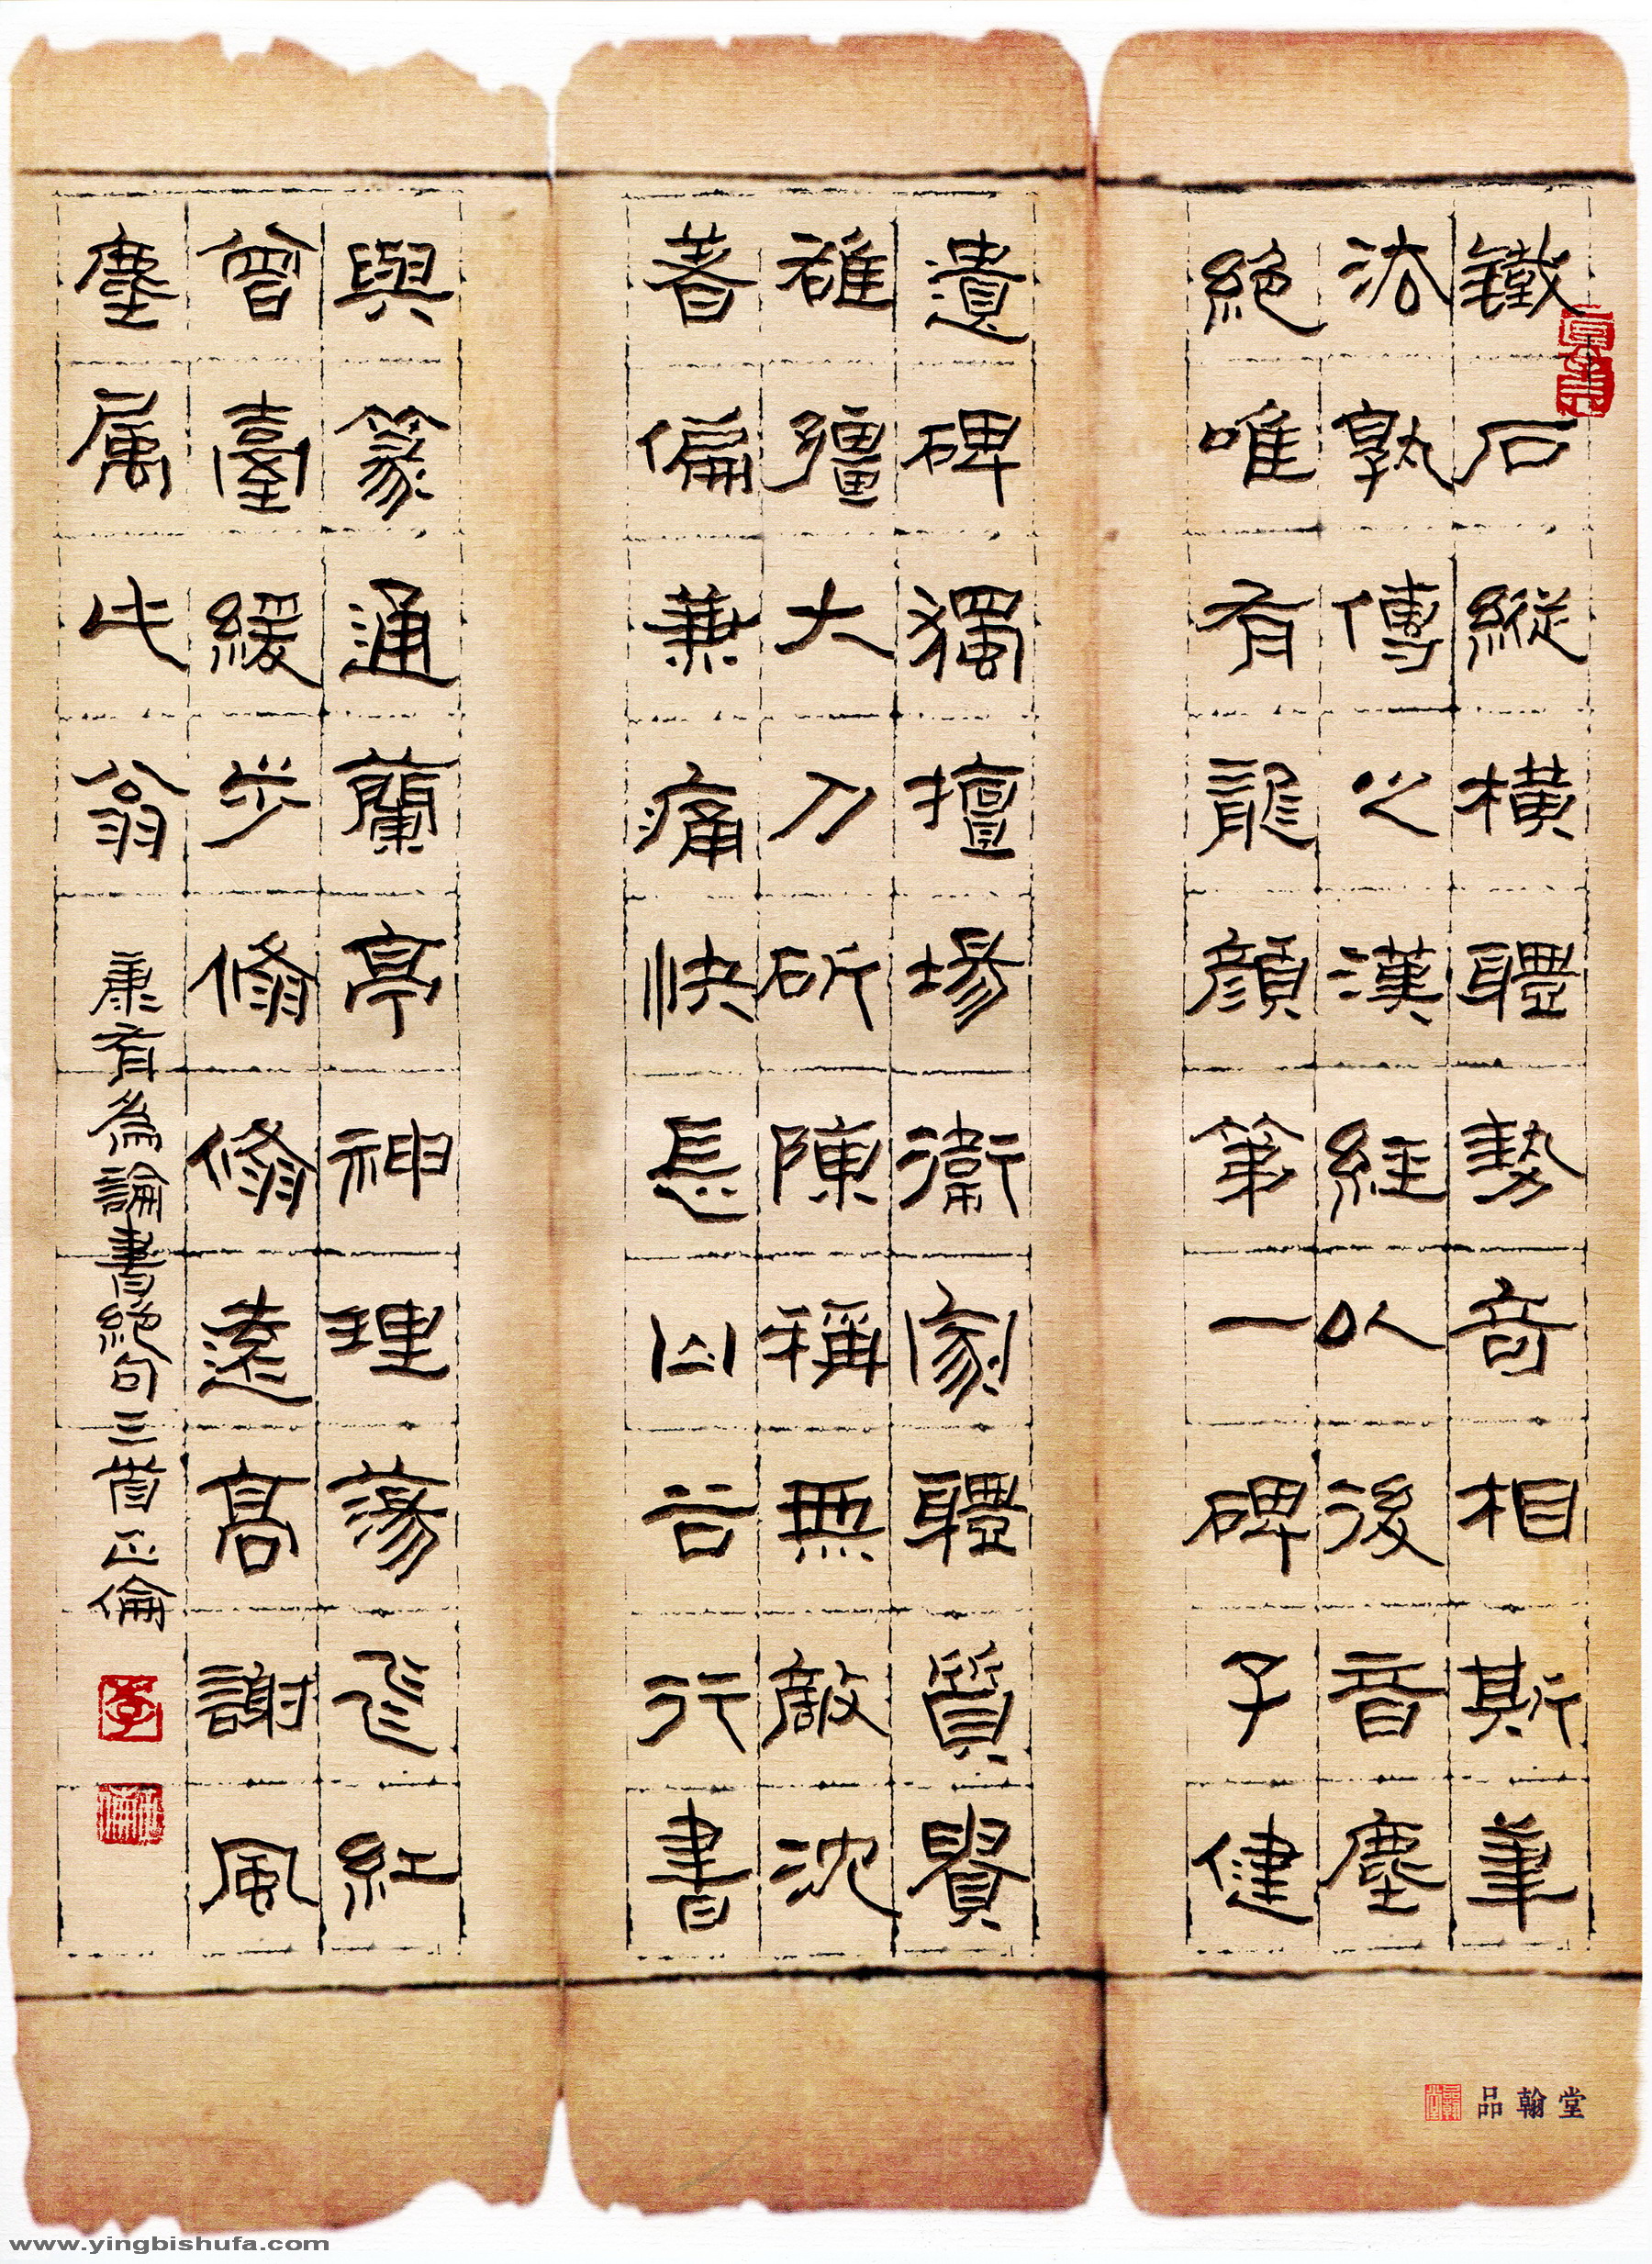 鐵石縱橫體勢奇相斯筆
法孰傳之漢經以後音塵
絕唯有龍顏第一碑子健
遺碑獨擅場衛家體質費
雄彊大刀斫陣稱無敵沈
著偏兼痛快長山谷行書
與篆通蘭亭神理蕩飛紅
層臺緩步翛翛遠高謝風
塵屬此翁
康有為論書絕句三首正倫
品翰堂
www.yingbishufa.com